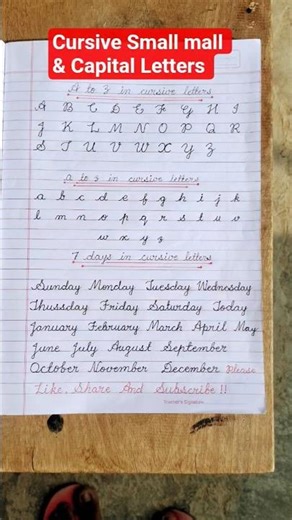 Cursive Small mall
& Capital Letters
A to Z in cursive letters
A B C D E F G H I
J K L M N O P Q R
S T U V W X Y Z
a to z in cursive letters
a b c d e f g h i j k
l m n o p q r s t u v
w x y z
7 days in cursive letters
Sunday Monday Tuesday Wednesday
Thussday Friday Saturday Today
January February March April May
June July August September
October November December Please
Like, Share And Subscribe !!